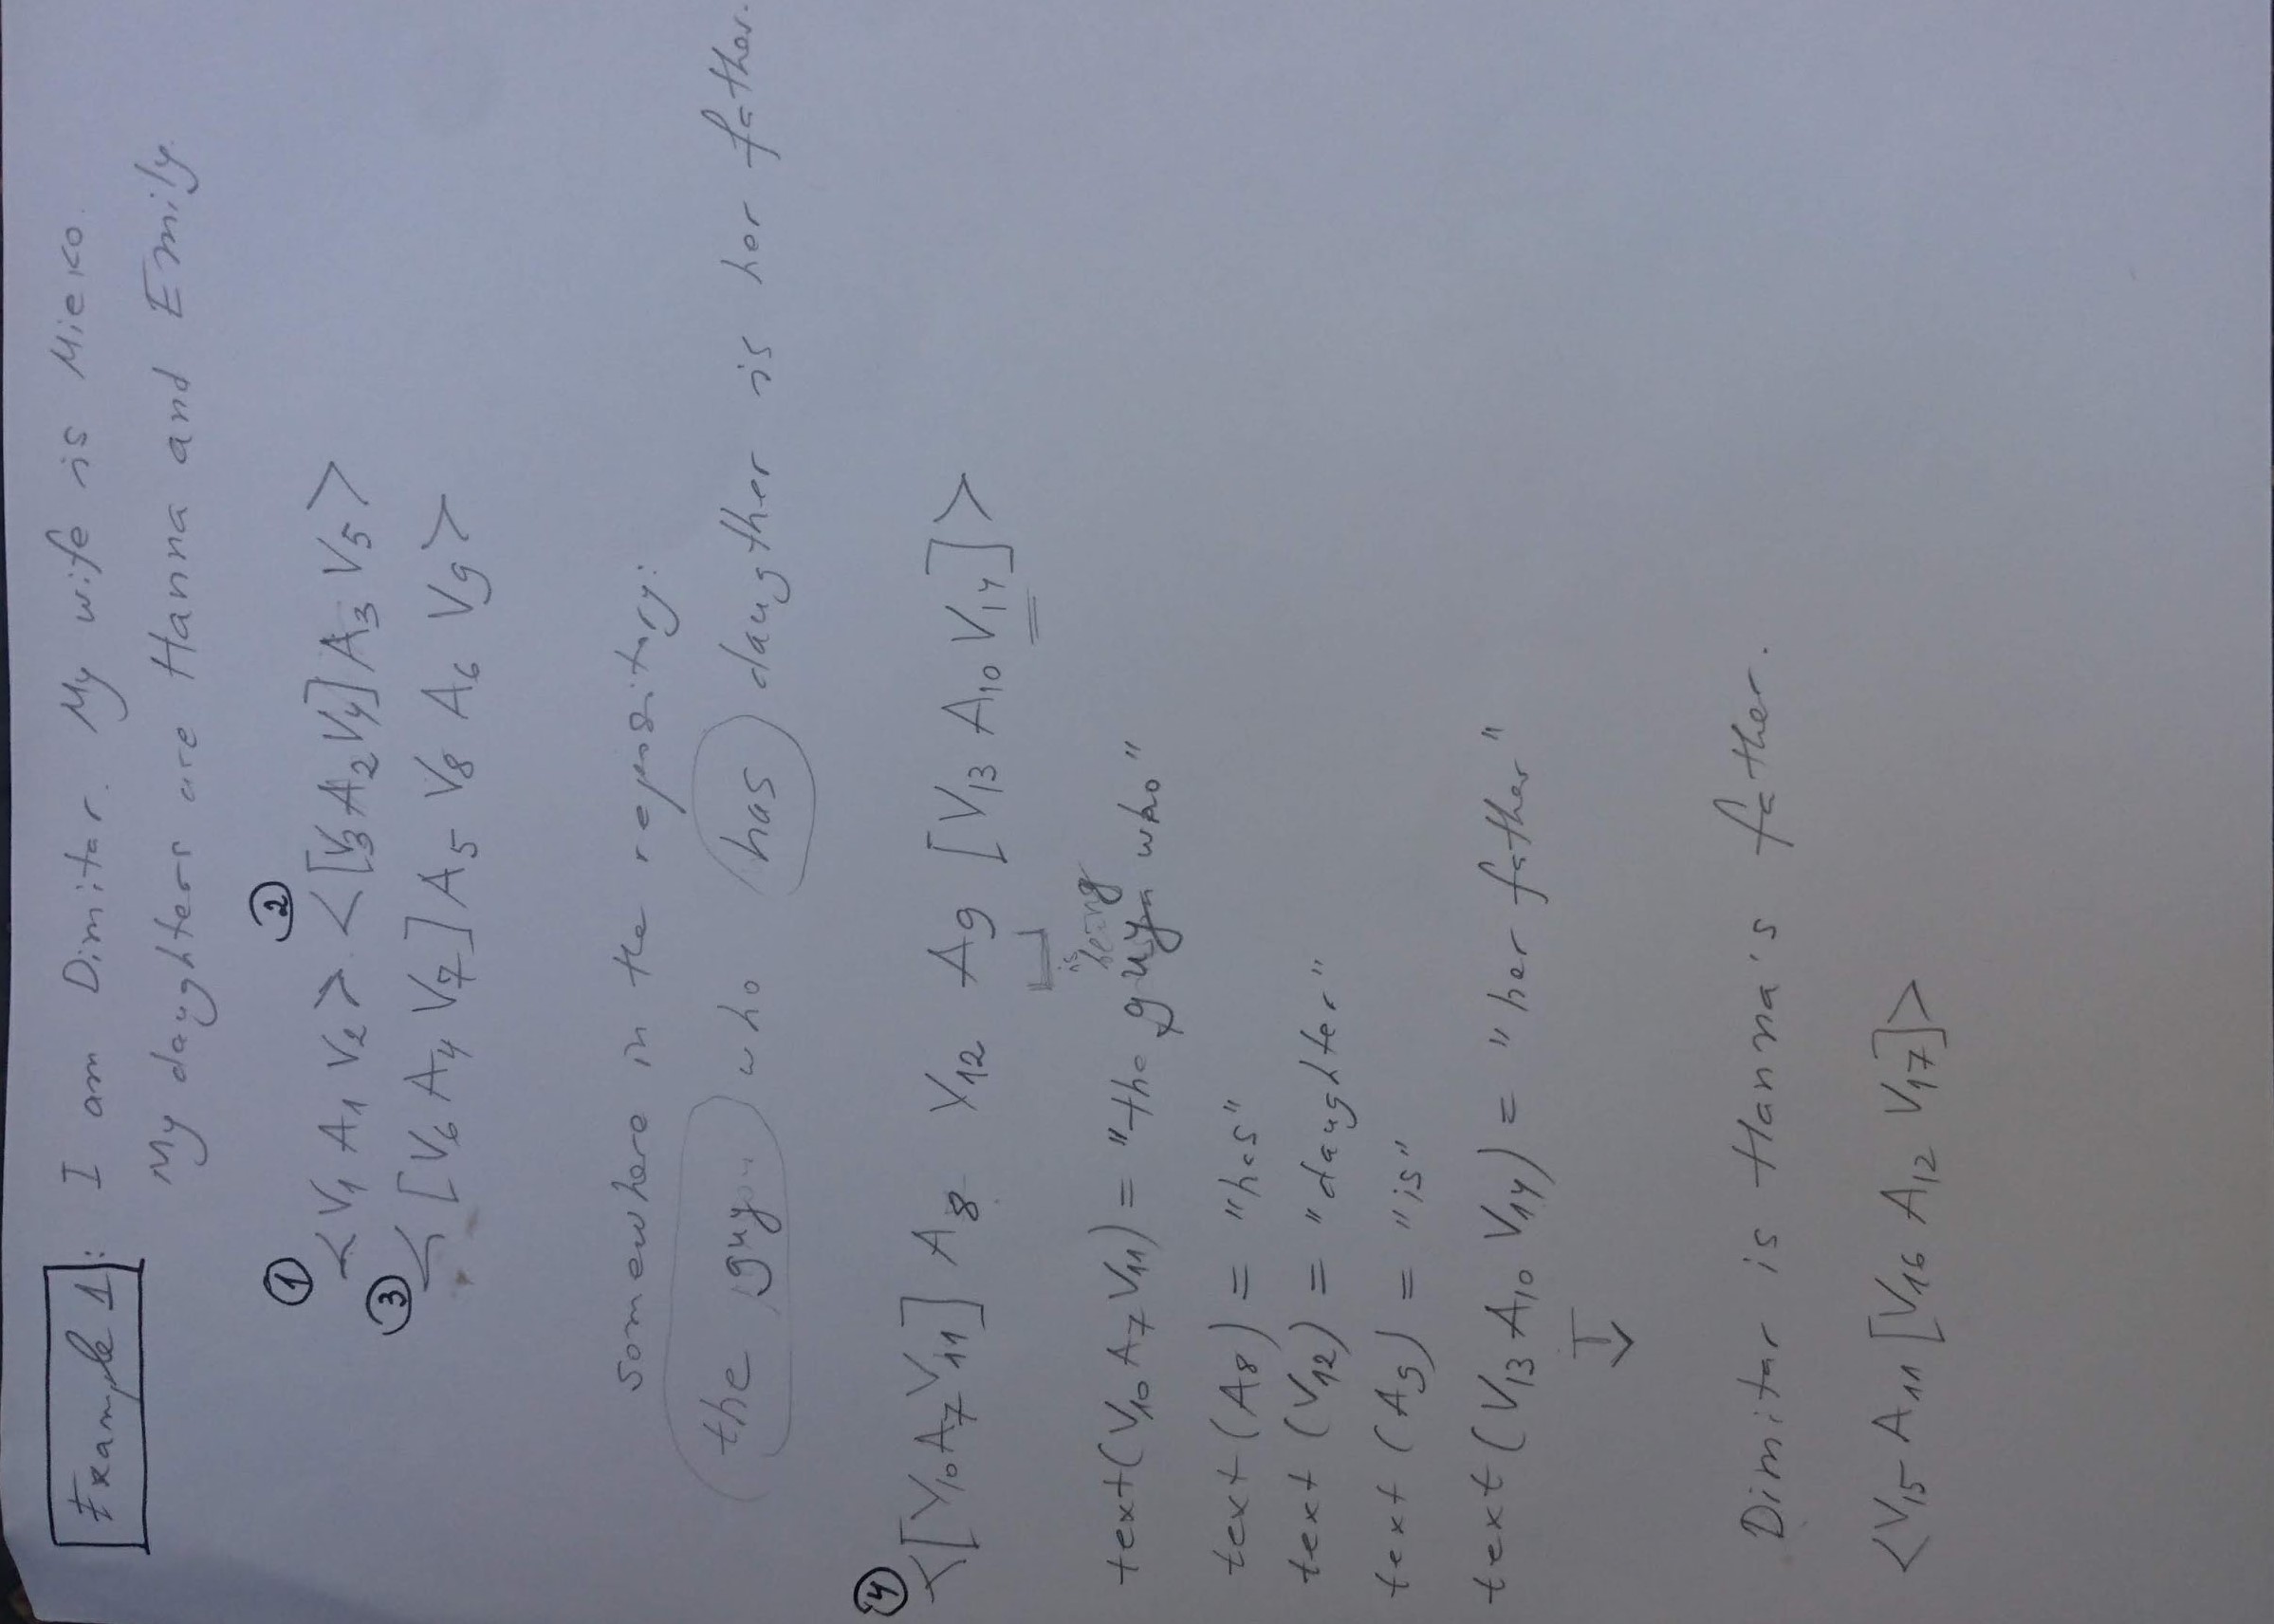 Example 1: I am Dimitar. My wife is Mieko.
My daughters are Hanna and Emily.
① <V₁ A₁ V₂> ② <[V₃ A₂ V₄] A₃ V₅>
③ <[V₆ A₄ V₇] A₅ V₈ A₆ V₉>
somewhere in the repository:
the guy who has daugther is her father.
④ <[V₁₀ A₇ V₁₁] A₈ V₁₂ A₉ [V₁₃ A₁₀ V₁₄]>
is
being
text(V₁₀ A₇ V₁₁) = "the guy who"
text (A₈) = "has"
text (V₁₂) = "daughter"
text (A₉) = "is"
text (V₁₃ A₁₀ V₁₄) = "her father"
↓
Dimitar is Hanna's father.
<V₁₅ A₁₁ [V₁₆ A₁₂ V₁₇]>